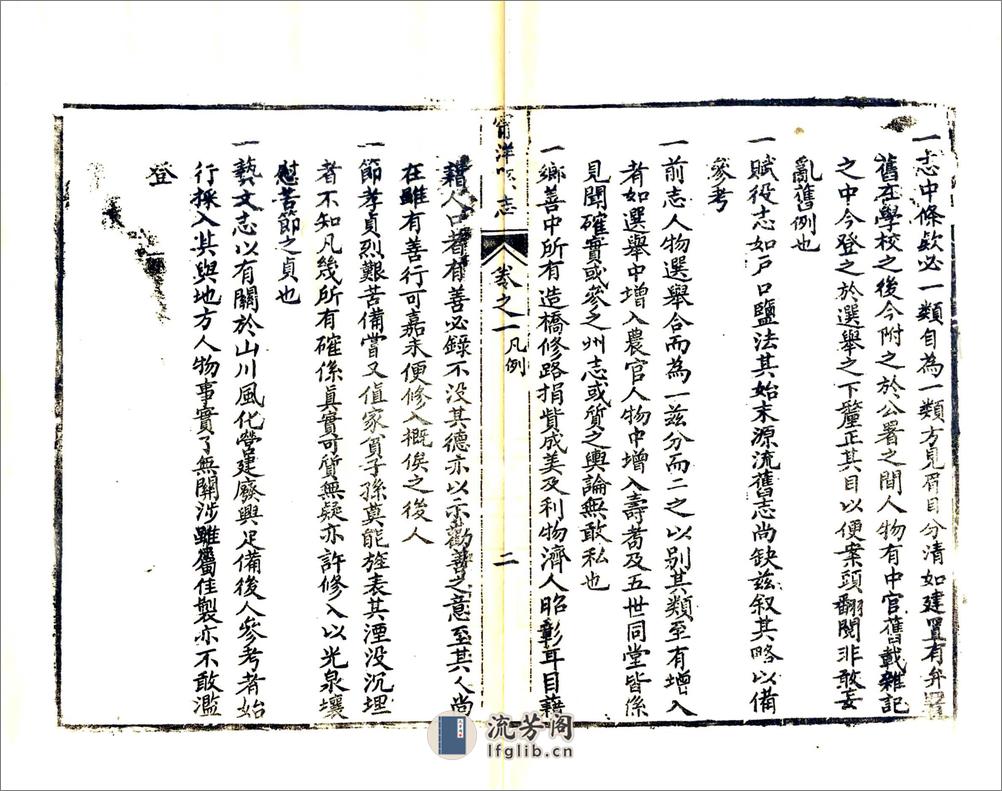 一志中條欵必一類自為一類方見眉目分清如建置有弁署
舊在學校之後今附之於公署之間人物有中官舊載雜記
之中今登之於選舉之下釐正其目以便案頭翻閱非敢妄
亂舊例也
一賦役志如戶口鹽法其始末源流舊志尚缺兹叙其略以備
參考
一前志人物選舉合而為一兹分而二之以别其類至有增入
者如選舉中增入農官人物中增入壽耇及五世同堂皆係
見聞確實或參之州志或質之輿論無敢私也
一鄉善中所有造橋修路捐貲成美及利物濟人昭彰耳目藉
甯洋縣志
卷之一凡例
二
藉人口者有善必錄不没其德亦以示勸善之意至其人尚
在雖有善行可嘉未便修入概俟之後人
一節孝貞烈艱苦備嘗又值家貧子孫莫能旌表其湮没沉埋
者不知凡幾所有確係真實可質無疑亦許修入以光泉壤
慰苦節之貞也
一藝文志以有關於山川風化營建廢興足備後人參考者始
行採入其與地方人物事實了無關涉雖屬佳製亦不敢濫
登
流芳阁
lfglib.cn